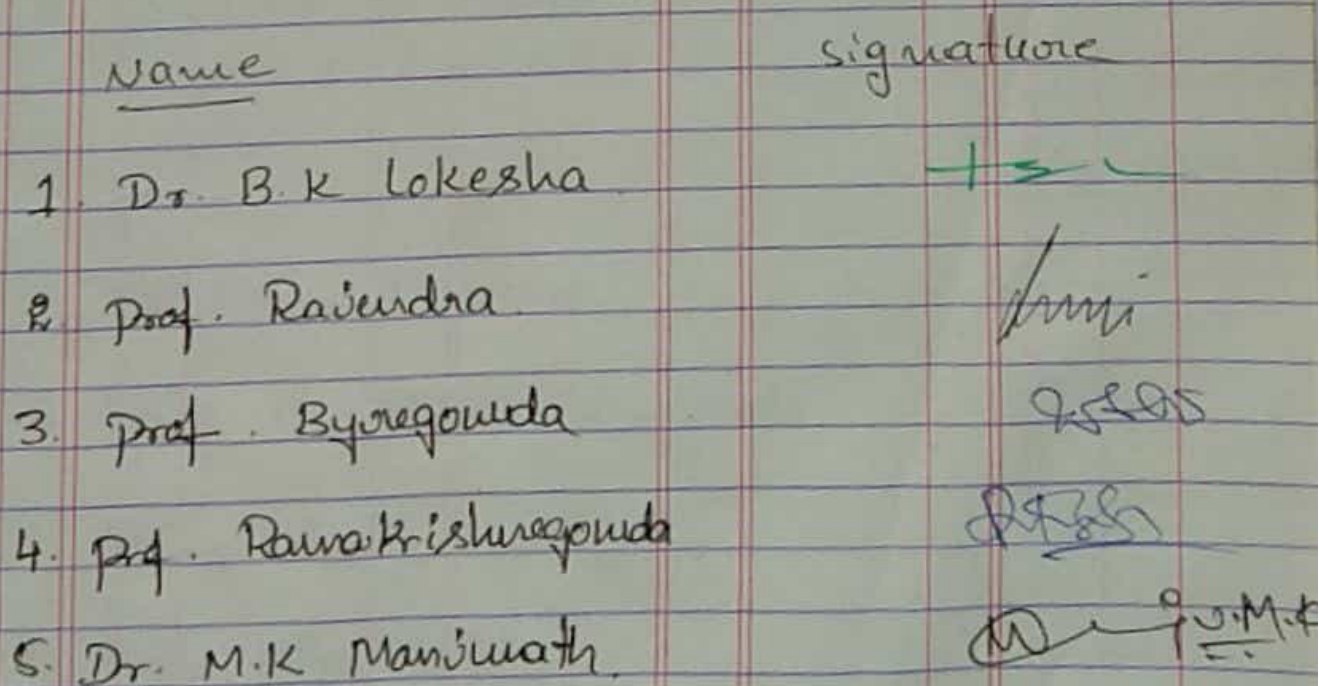 Name signature
1. Dr. B.K Lokesha
2 Prof. Rajendra
3. Prof. Byregowda
4. Prof. Ramakrishnegowda
5. Dr. M.K Manjunath M.K